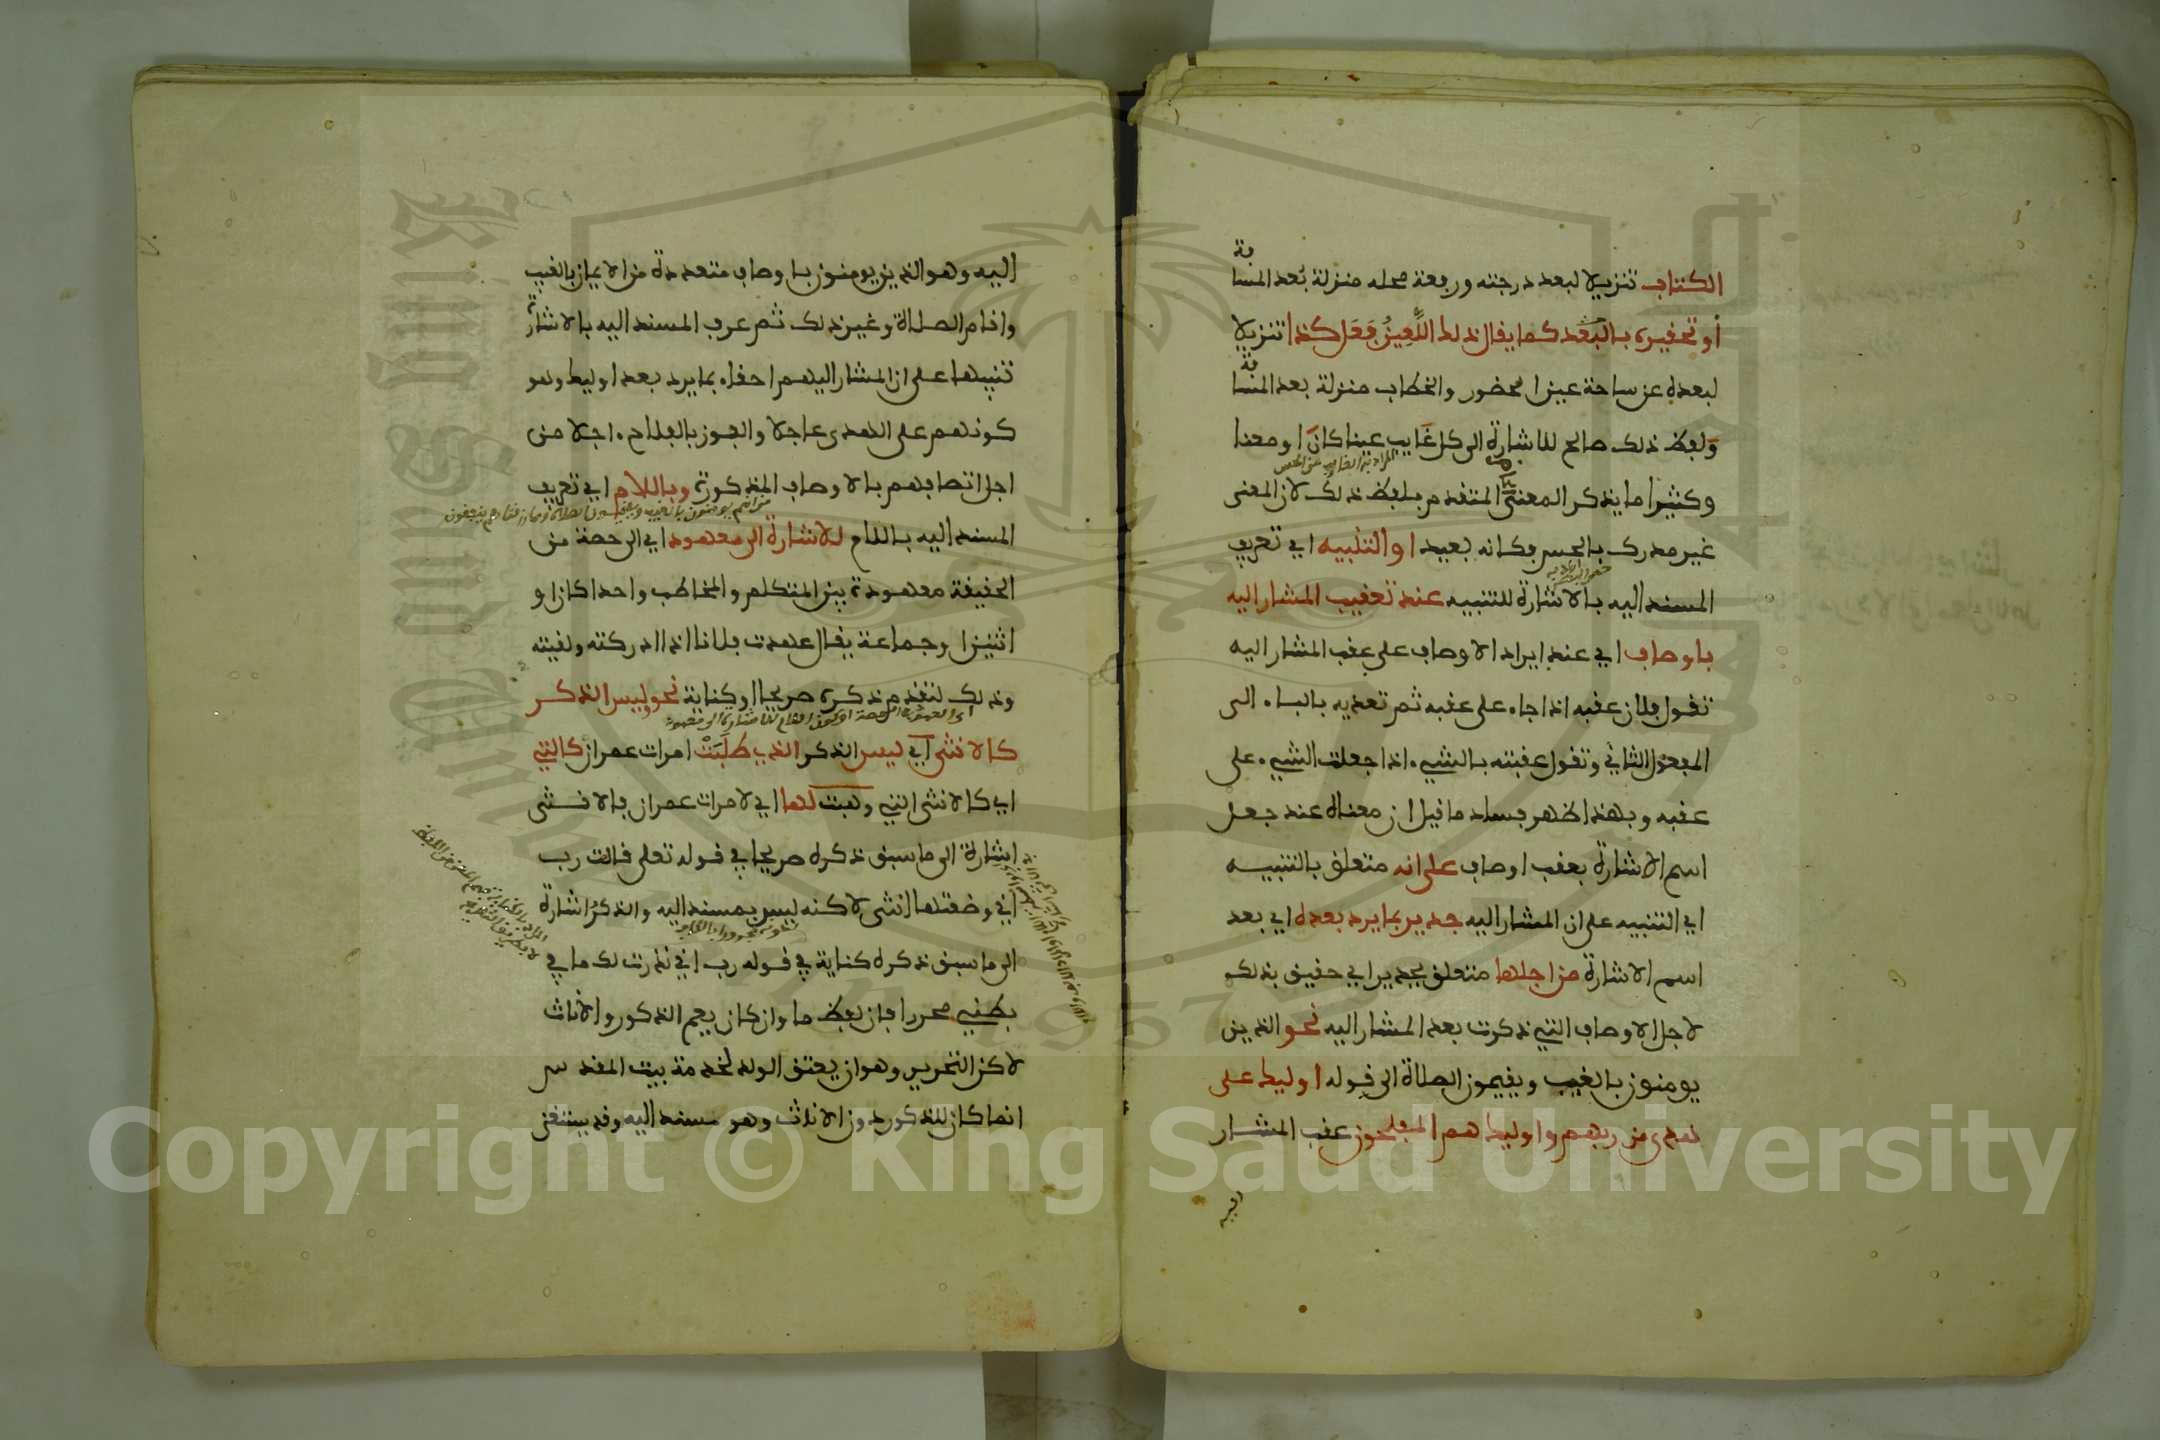 الكتاب تنزيلا لبعد درجته ورفعة محله منزلة بُعد المسافة
أو تحقيره بالبعد كما يقال ذلك اللَّعِينُ فَعَل كذا تنزيلا
لبعده عن ساحة عز الحضور والخطاب منزلة بعد المسافة
وَلفظ ذلك صالح للاشارة الى كل غَايب عينا كانَ او معنا
وكثيرا ما يذكر المعنى المتقدم بلفظ ذلك لان المعنى
غير مدرك بالحس فكانه بعيد او التنبيه اي تعريف
المسند اليه بالاشارة للتنبيه عند تعقيب المشار اليه
باوصاف اي عند ايراد الاوصاف على عقب المشار اليه
تقول فلان عقبه اذا جاء على عقبه ثم تعديه بالباء الى
المفعول الثاني وتقول عقبته بالشيء اذا جعلت الشيء على
عقبه وبهذا ظهر فساد ما قيل ان معناه عند جعل
اسم الاشارة بعقب اوصاف على انه متعلق بالتنبيه
اي التنبيه على ان المشار اليه جدير بما يرد بعده اي بعد
اسم الاشارة من اجلها متعلق بجدير اي حقيق بذلك
لاجل الاوصاف التي ذكرت بعد المشار اليه نحو الذين
يومنون بالغيب ويقيمون الصلاة الى قوله اوليك على
هدى من ربهم واوليك هم المفلحون عقب المشار
اليه وهو الذين يومنون باوصاف متعددة من الايمان بالغيب
واقام الصلاة وغير ذلك ثم عرف المسند اليه بالاشارة
تنبيها على ان المشار اليهم احقاء بما يرد بعد اوليك وهو
كونهم على الهدى عاجلا والفوز بالفلاح اجلا من
اجل اتصافهم بالاوصاف المذكورة وباللام اي تعريف
المسند اليه باللام للاشارة الى معهود اي الى حصة من
الحقيقة معهودة بين المتكلم والمخاطب واحدا كان او
اثنين او جماعة يقال عهدت فلانا اذا ادركته ولقيته
وذلك لتقدم ذكره صريحا او كناية نحو وليس الذكر
كالانثى اي ليس الذكر الذي طَلَبَتْ امرات عمران كالتي
اي كالانثى التي وهبت لها اي لامرات عمران فالانثى
اشارة الى ما سبق ذكره صريحا في قوله تعلى قالت رب
اني وضعتها انثى لاكنه ليس بمسند اليه والذكرُ اشارة
الى ما سبق ذكره كناية في قوله رب اني نذرت لك ما في
بطني محررا فان لفظ ما وان كان يعم الذكور والاناث
لاكن التحرير وهو ان يعتق الولد لخدمة بيت المقدس
انما كان للذكور دون الاناث وهو مسند اليه وقد يستغنى
Copyright © King Saud University